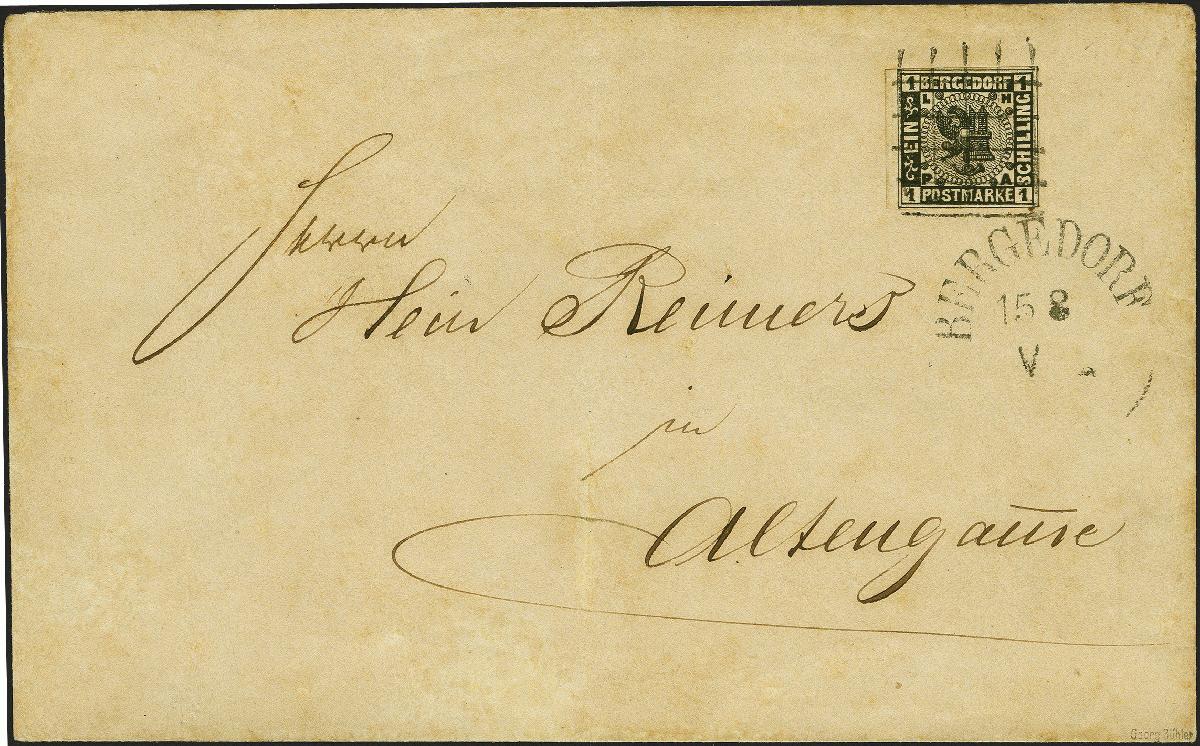 1 BERGEDORF 1
L H
EIN
SCHILLING
P A
1 POSTMARKE 1
BERGEDORF
15 8
V
Herrn
Hein Reimers
in
Altengamme
Georg Bühler